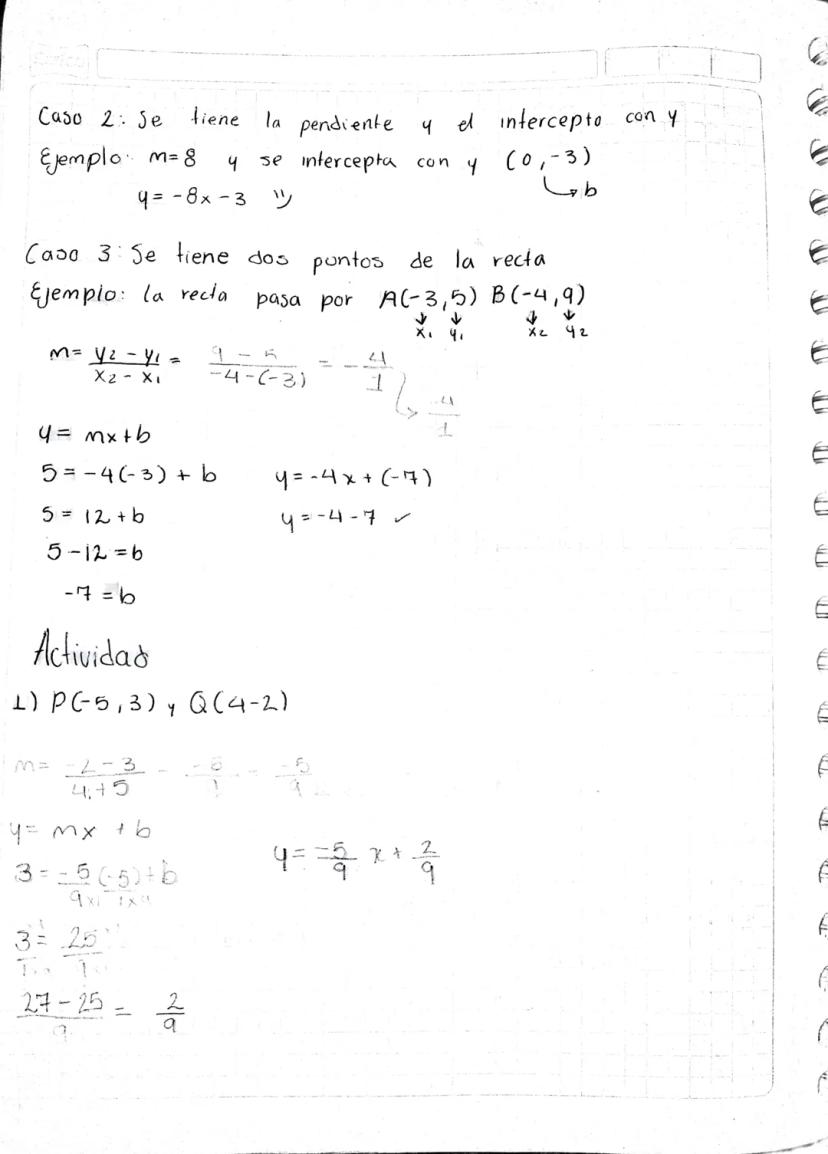 Caso 2: Se tiene la pendiente y el intercepto con y
Ejemplo: m=8 y se intercepta con y (0,-3)
y = -8x -3 b
Caso 3: Se tiene dos puntos de la recta
Ejemplo: la recta pasa por A(-3,5) B(-4,9)
x₁ y₁ x₂ y₂
m= y₂ - y₁ / x₂ - x₁ = 9 - 5 / -4-(-3) = - 4/1
4/1
y = mx+b
5 = -4(-3) + b y = -4x + (-7)
5 = 12 + b y = -4 -7 ✓
5 -12 = b
-7 = b
Actividad
1) P(-5,3) y Q(4-2)
m= -2-3 / 4+5 -5/9
y = mx + b
3 = -5/9 (-5) + b y = -5/9 x + 2/9
3 = 25
27 - 25 / 9 = 2/9